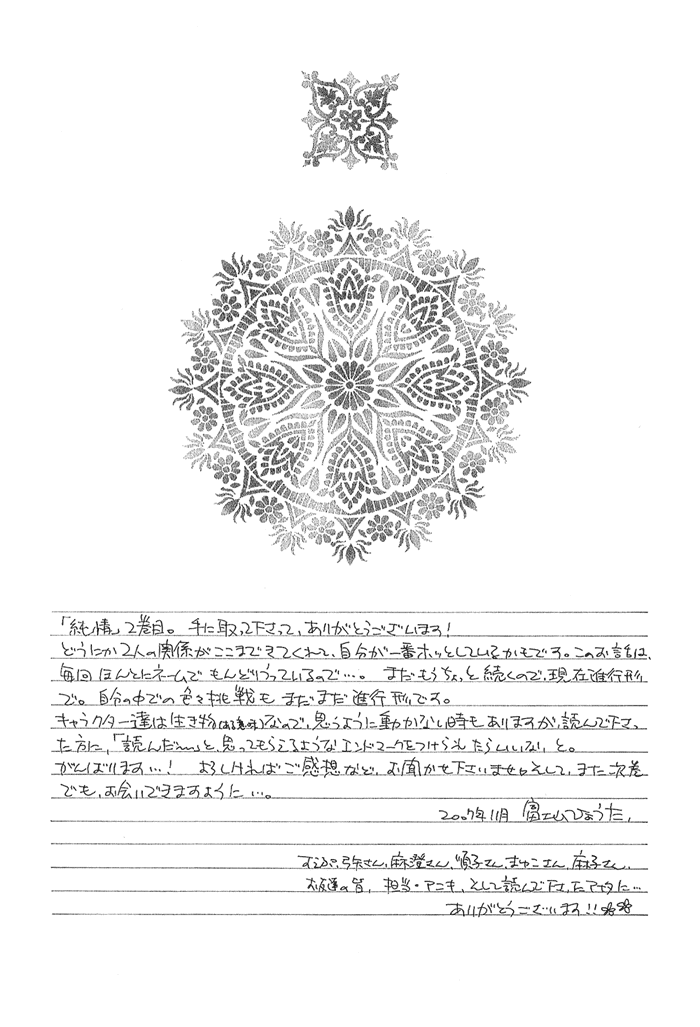 「純情」2巻目。手に取って下さって、ありがとうございます!
どうにか2人の関係がここまできてくれて、自分が一番ホッとしているかもです。このお話は、
毎回ほんとにネームでもんどりうっているので…。まだもうちょっと続くので、現在進行形
で。自分の中での色々挑戦もまだまだ進行形です。
キャラクター達は生き物(ある意味)なので、思うように動かない時もありますが、読んで下さっ
た方に、「読んだ〜」と、思ってもらえるようなエンドマークをつけられたらいいな、と。
がんばります…! よろしければご感想など、お聞かせ下さいませ。そして、また次巻
でも、お会いできますように…。
2007年11月 富士山ひょうた。
弥さん、麻澄さん、順子さん、まゆこさん、麻子さん、
お友達の皆、担当・アニキ、そして読んで下さったアナタに…
ありがとうございます!!